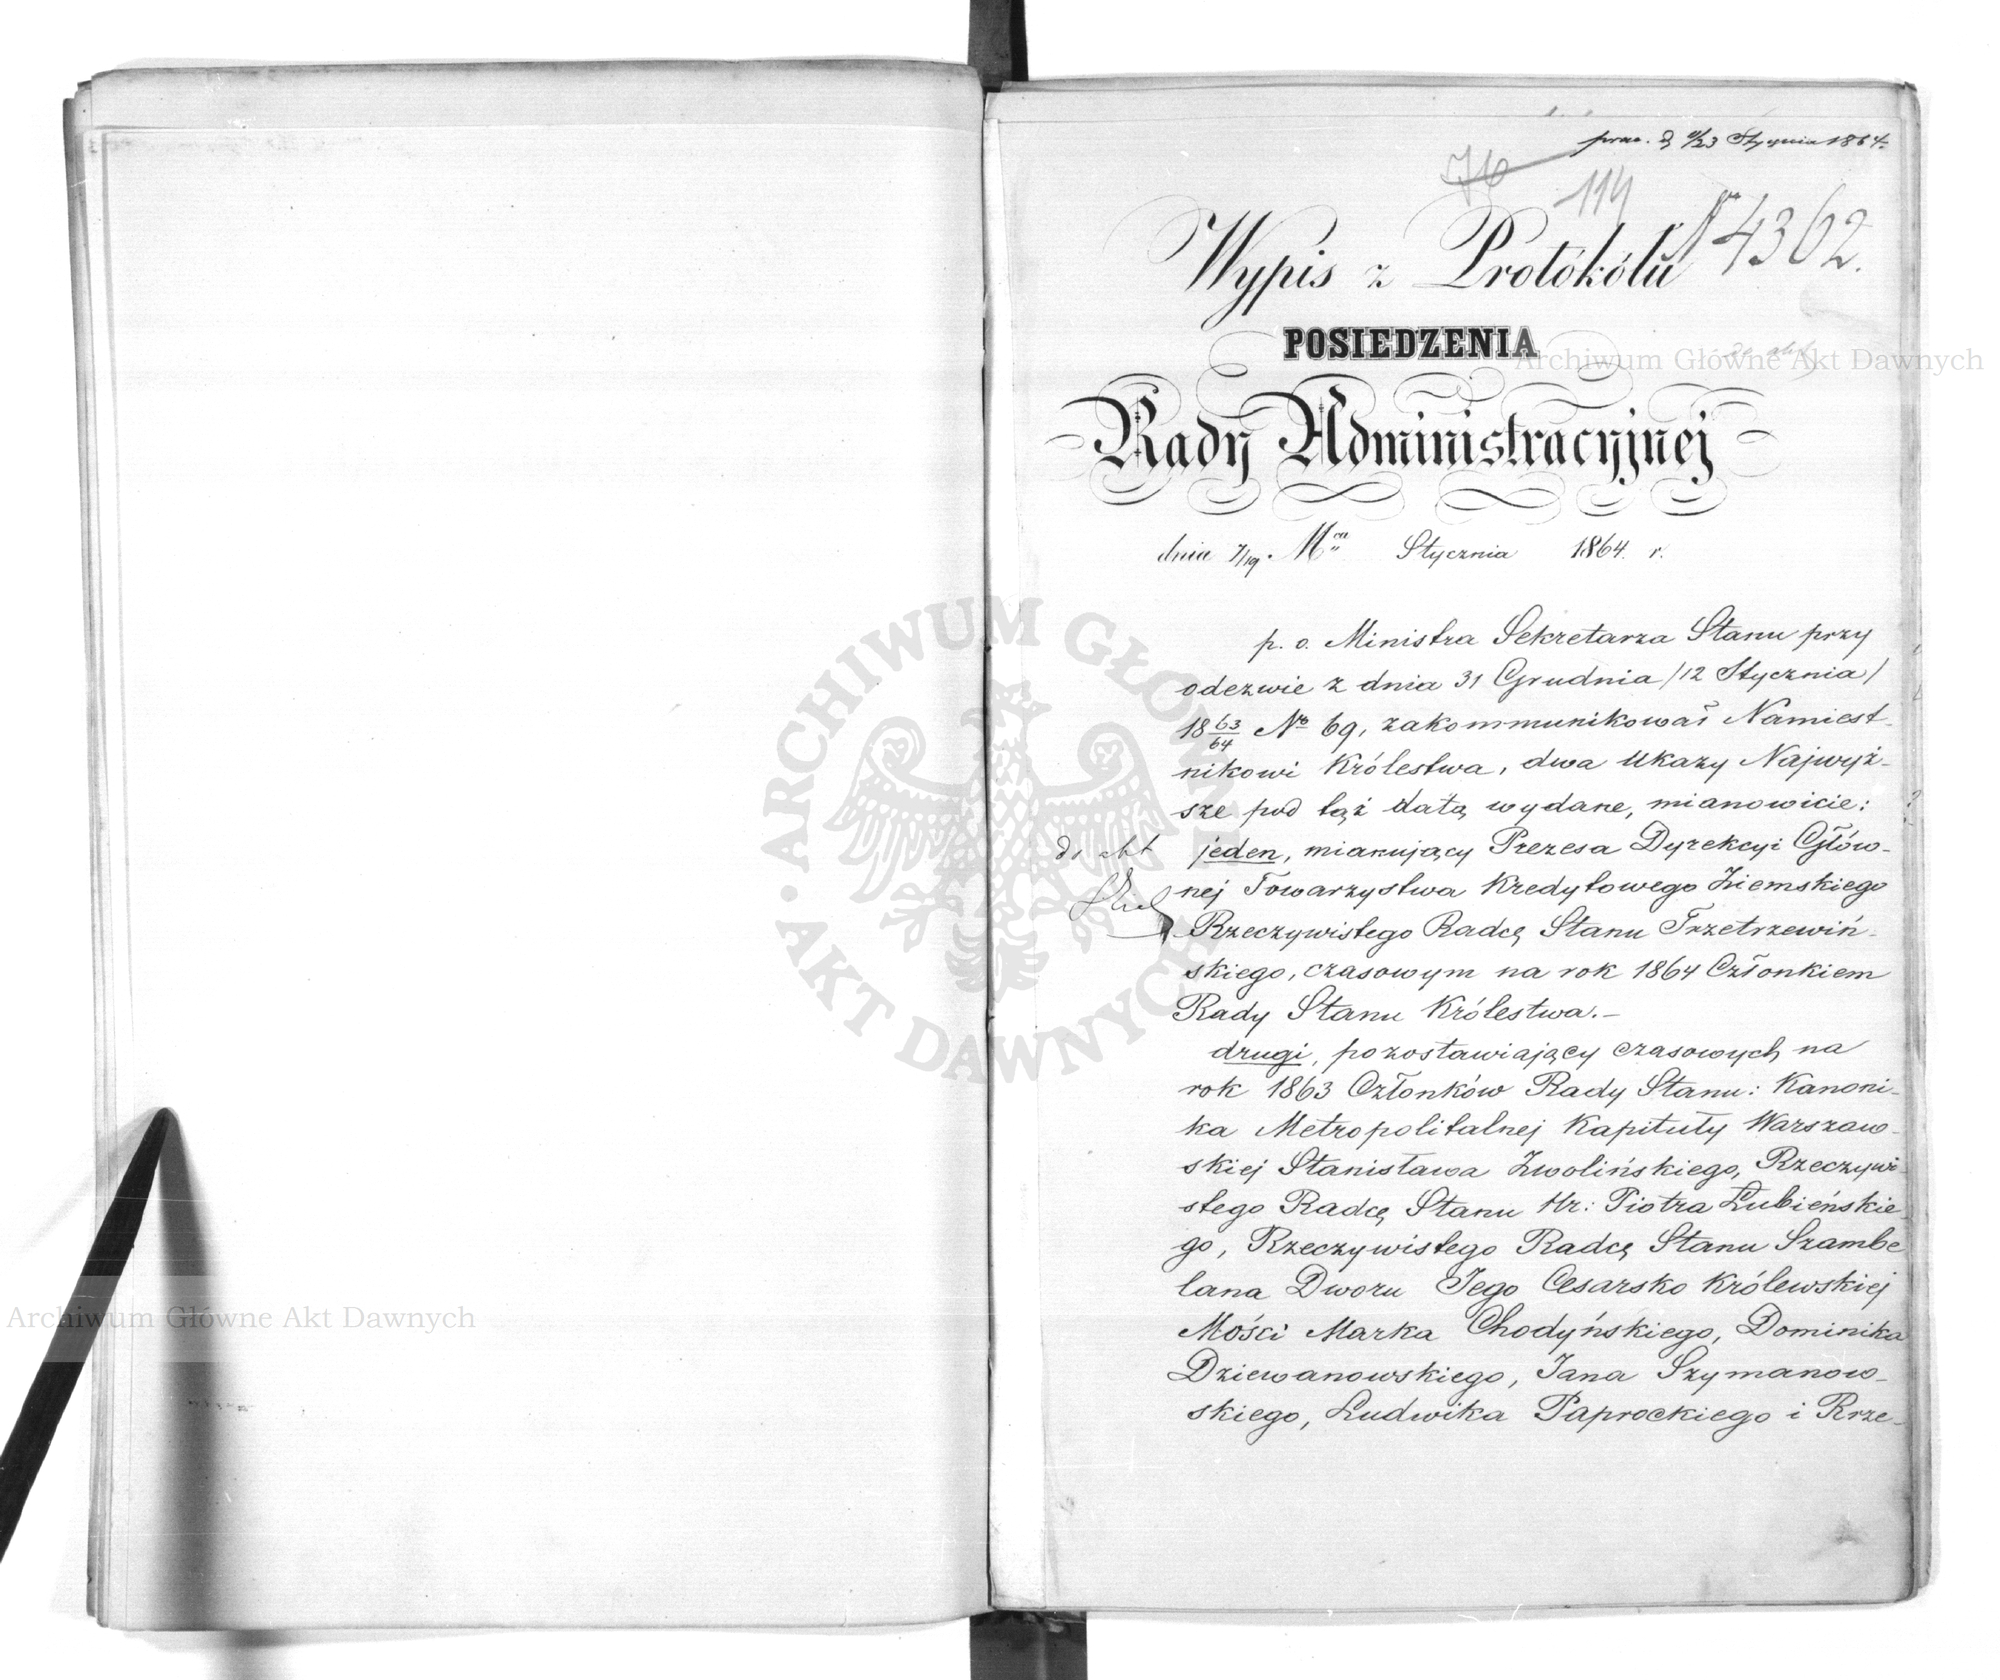 11/23 Stycznia 1864.
76
114
N 4362.
Wypis z Protókółu
POSIEDZENIA
Rady Administracyjnej
dnia 7/19. Mca Stycznia 1864. r.
p. o. Ministra Sekretarza Stanu przy
odezwie z dnia 31 Grudnia /12 Stycznia/
18 63/64 No 69, zakommunikował Namiest-
nikowi Królestwa, dwa Ukazy Najwyż-
sze pod tąż datą wydane, mianowicie:
jeden, mianujący Prezesa Dyrekcyi Głów-
nej Towarzystwa Kredytowego Ziemskiego
Rzeczywistego Radcę Stanu Trzetrzewiń-
skiego, czasowym na rok 1864 Członkiem
Rady Stanu Królestwa.-
drugi, pozostawiający czasowych na
rok 1863 Członków Rady Stanu: Kanoni-
ka Metropolitalnej Kapituły Warszaw-
skiej Stanisława Zwolińskiego, Rzeczywi-
stego Radcę Stanu Hr: Piotra Łubieńskie-
go, Rzeczywistego Radcę Stanu Szambe
lana Dworu Jego Cesarsko Królewskiej
Mości Marka Chodyńskiego, Dominika
Dziewanowskiego, Jana Szymanow-
skiego, Ludwika Paprockiego i Rze-
do akt
Archiwum Główne Akt Dawnych
Archiwum Główne Akt Dawnych
ARCHIWUM GŁÓWNE · AKT DAWNYCH